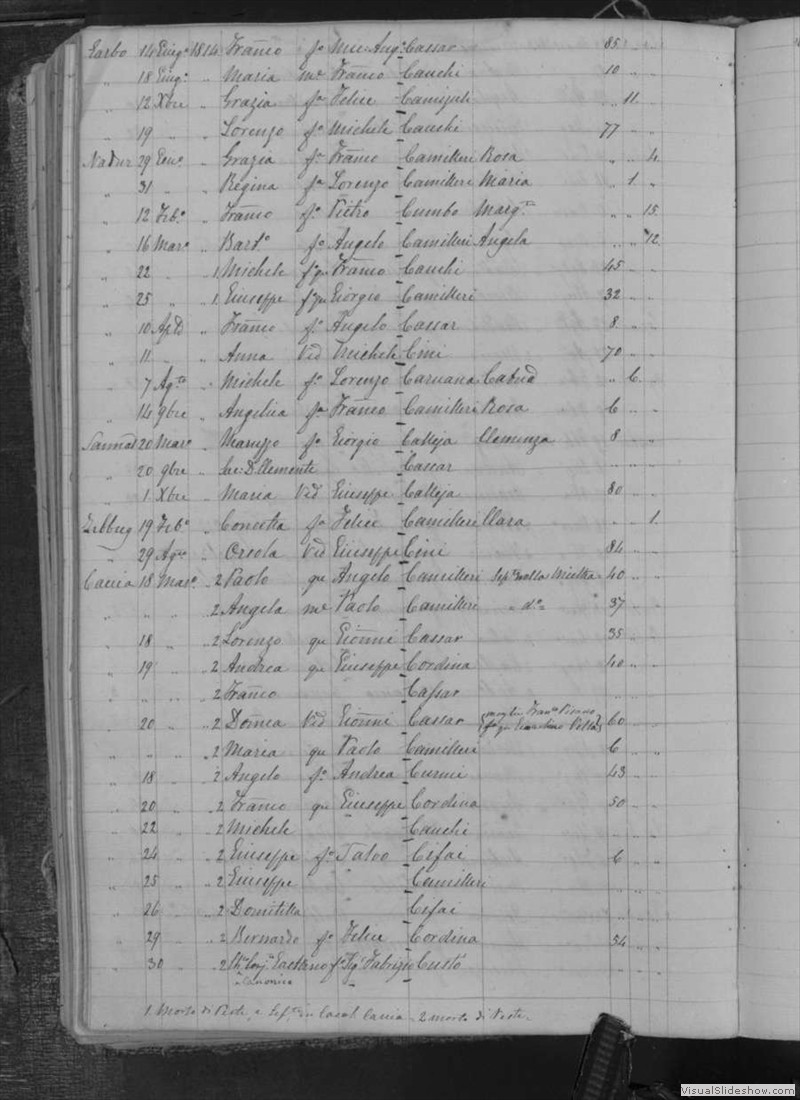 Garbo 14 Giug.º 1814 Franco fº Mic: Angº Cassar 85 " "
" 18 Giug.º " Maria me Franco Cauchi 10 " "
" 12 Xbre " Grazia fª Felice " 11 "
" 19 " " Lorenzo fº Michele Cauchi 77 " "
Nadur 29 Genº " Grazia fª Franco Camilleri Rosa " " 4
" 31 " " Regina fª Lorenzo Camilleri Maria " 1 "
" 12 Febº " Franco fº Pietro Cumbo Margta " " 15
" 16 Marº " Bartº fº Angelo Camilleri Angela " " 12
" 22 " 1 Michele fº qu Franco Cauchi 45 " "
" 25 " 1 Giuseppe fº qu Giorgio Camilleri 32 " "
" 10 Apd " Franco fº Angelo Cassar 8 " "
" 11 " " Anna Vid Michele Cini 70 " "
" 7 Agto " Michele fº Lorenzo Caruana " 6 "
" 14 9bre " fª Franco Camilleri Rosa 6 " "
Sannat 20 Marº " fº Giorgio Calleja Clemenza 8 " "
" 20 9bre " Sac: D. Clemente Cassar " " "
" 1 Xbre " Maria Vid Giuseppe Calleja 80 " "
Zebbug 19 Febº " Concetta fª Felice Camilleri Clara " " 1
" 29 Agto " Orsola Vid Giuseppe Cini 84 " "
Caccia 18 Marº 2 Paolo qu Angelo Camilleri 40 " "
" " " 2 Angela me Paolo Camilleri " dº " 37 " "
" 18 " 2 Lorenzo qu Gionni Cassar 35 " "
" 19 " 2 Andrea qu Giuseppe Cordina 40 " "
" " " 2 Franco Cassar " "
" 20 " 2 Domca Vid Gionni Cassar 60 " "
" " " 2 Maria qu Paolo Camilleri 6 " "
" 18 " 2 Angelo fº Andrea Curmi 43 " "
" 20 " 2 Franco qu Giuseppe Cordina 50 " "
" 22 " 2 Michele Cauchi " "
" 24 " 2 Giuseppe fº Salvo Cifai 6 " "
" 25 " 2 Giuseppe " Camilleri " "
" 26 " 2 Domitilla Cifai " "
" 29 " 2 Bernardo fº Felice Cordina 54 " "
" 30 2 Gaetano fº Sigr Fabrizio Custó " "
Canonico
1. Morto di Peste, e Sepº in Casal Caccia 2 morto di Peste.
VisualSlideshow.com